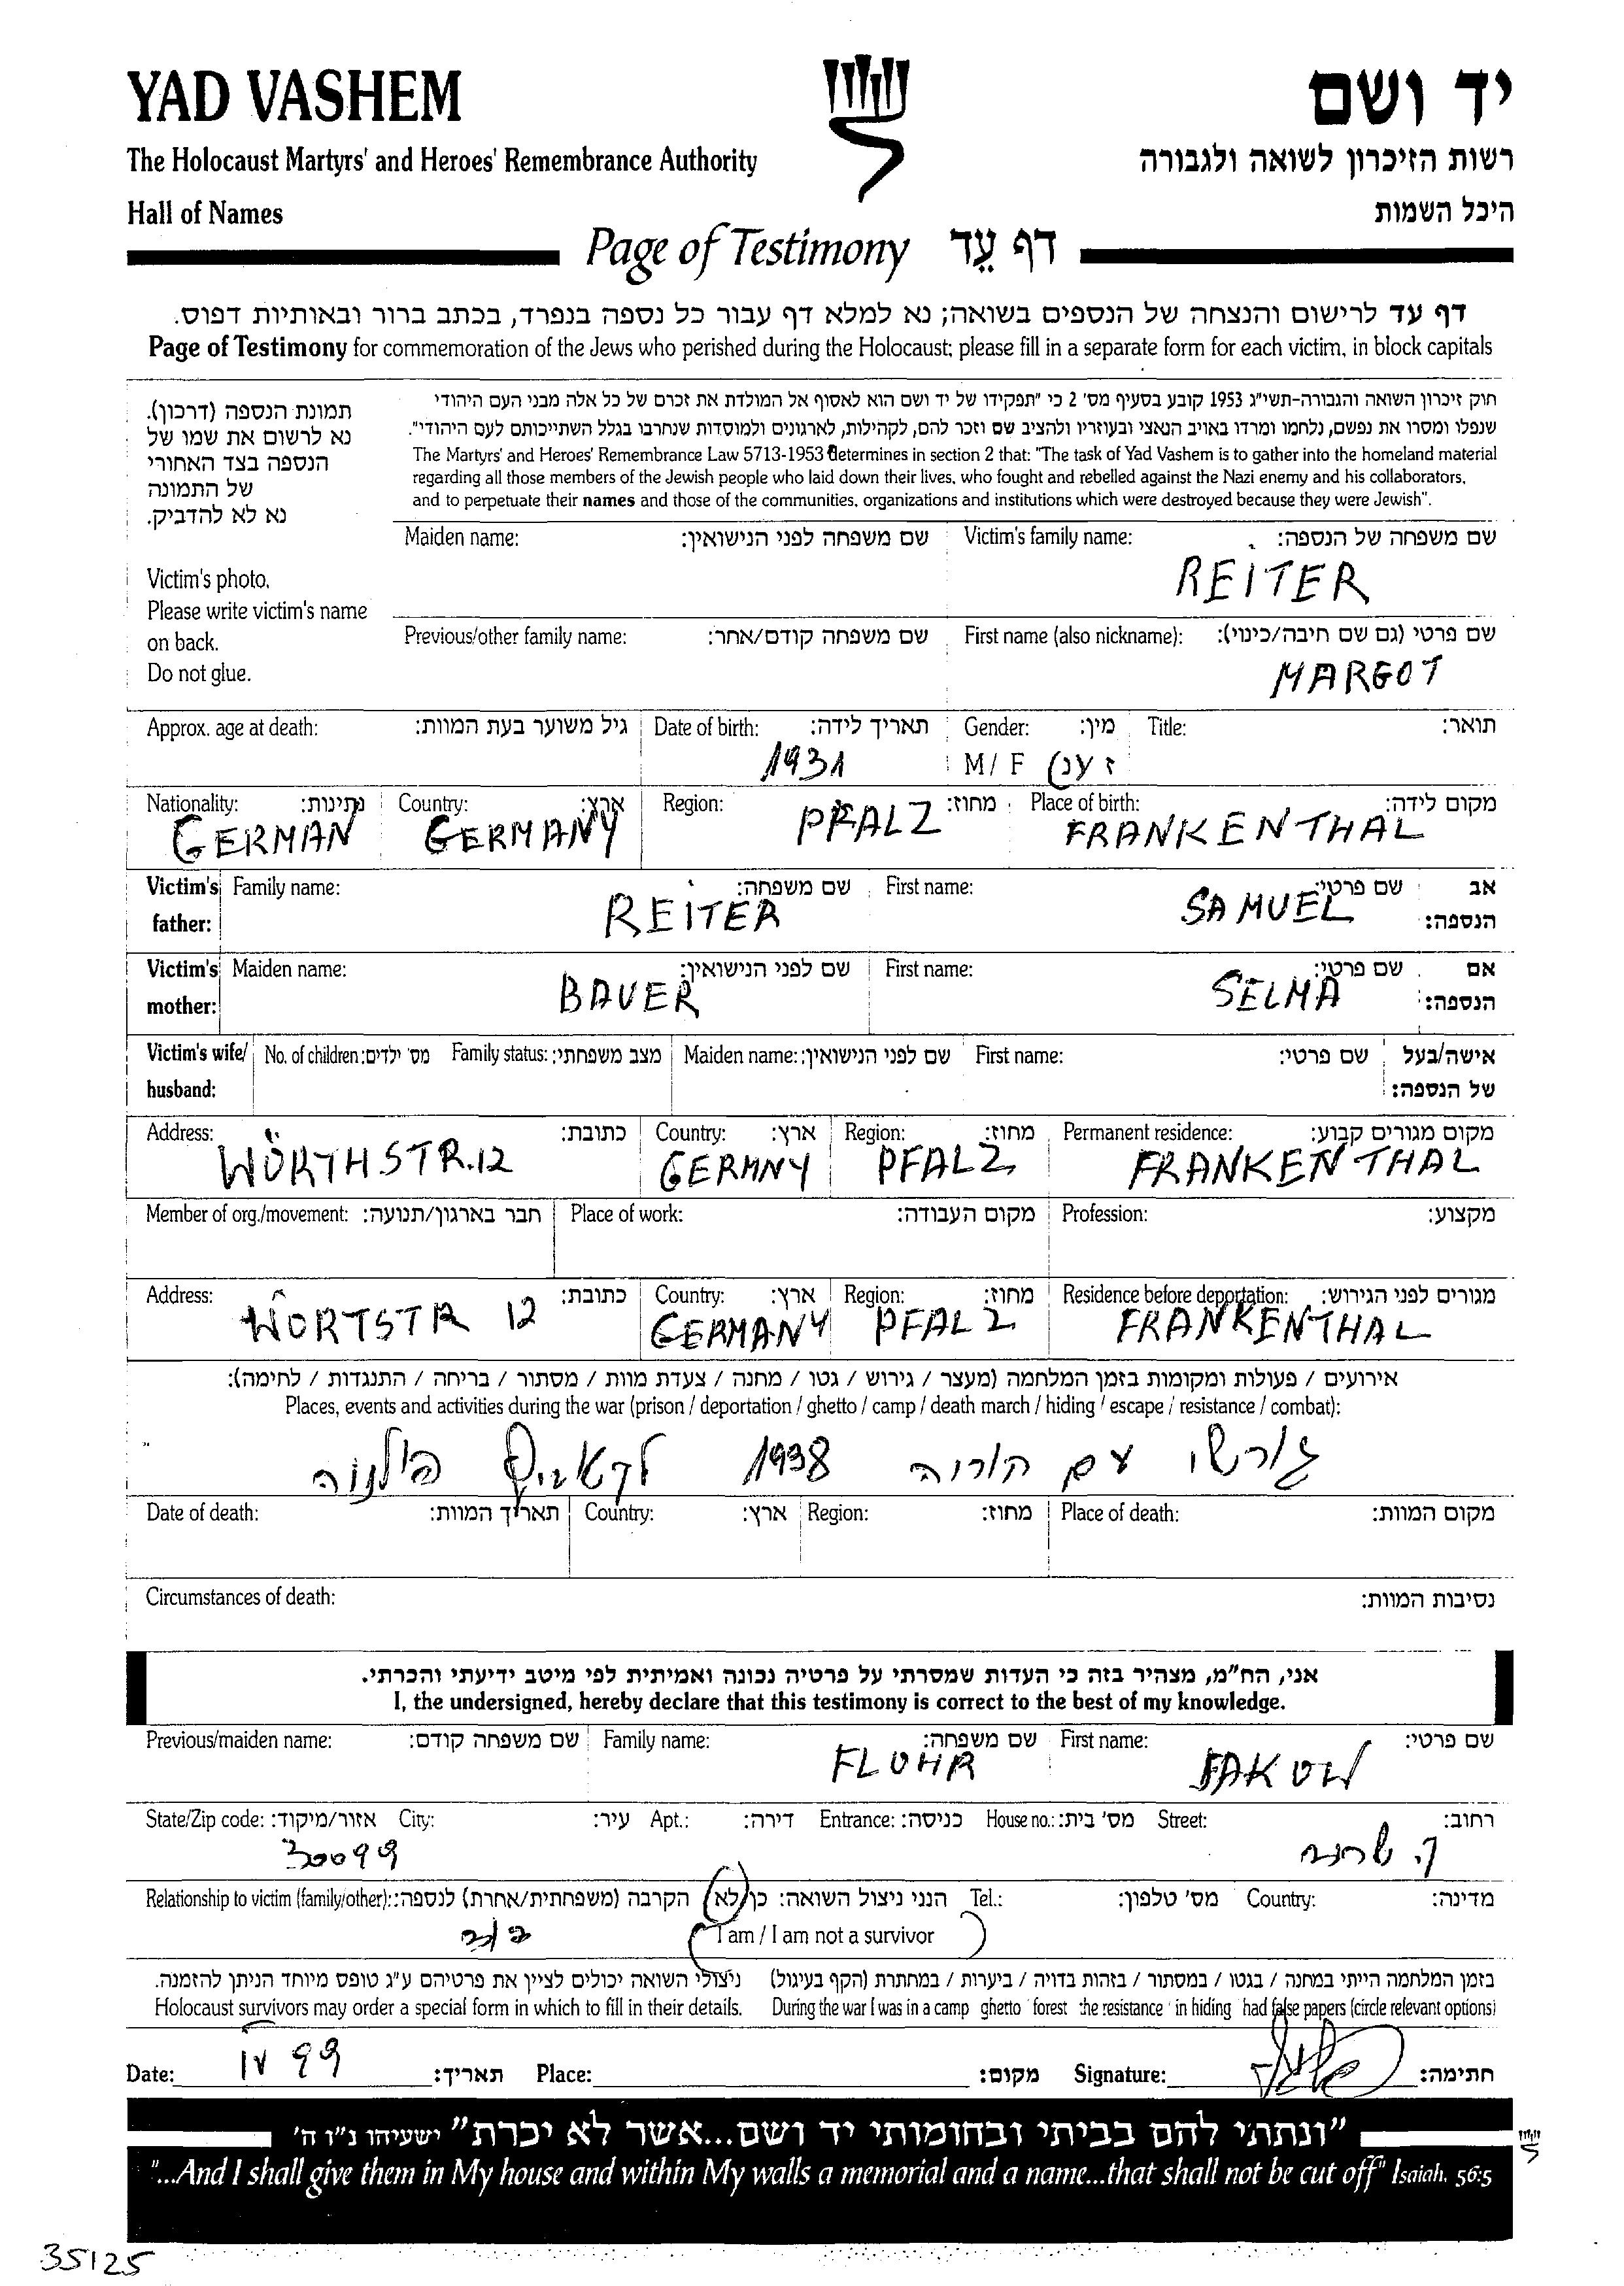 YAD VASHEM
יד ושם
The Holocaust Martyrs' and Heroes' Remembrance Authority
רשות הזיכרון לשואה ולגבורה
Hall of Names
היכל השמות
Page of Testimony דף עֵד
דף עד לרישום והנצחה של הנספים בשואה; נא למלא דף עבור כל נספה בנפרד, בכתב ברור ובאותיות דפוס.
Page of Testimony for commemoration of the Jews who perished during the Holocaust; please fill in a separate form for each victim, in block capitals
תמונת הנספה (דרכון).
נא לרשום את שמו של
הנספה בצד האחורי
של התמונה
נא לא להדביק.
Victim's photo.
Please write victim's name
on back.
Do not glue.
חוק זיכרון השואה והגבורה-תשי"ג 1953 קובע בסעיף מס' 2 כי "תפקידו של יד ושם הוא לאסוף אל המולדת את זכרם של כל אלה מבני העם היהודי
שנפלו ומסרו את נפשם, נלחמו ומרדו באויב הנאצי ובעוזריו ולהציב שם וזכר להם, לקהילות, לארגונים ולמוסדות שנחרבו בגלל השתייכותם לעם היהודי".
The Martyrs' and Heroes' Remembrance Law 5713-1953 determines in section 2 that: "The task of Yad Vashem is to gather into the homeland material
regarding all those members of the Jewish people who laid down their lives, who fought and rebelled against the Nazi enemy and his collaborators,
and to perpetuate their names and those of the communities, organizations and institutions which were destroyed because they were Jewish".
Maiden name: שם משפחה לפני הנישואין: Victim's family name: שם משפחה של הנספה:
REITER
Previous/other family name: שם משפחה קודם/אחר: First name (also nickname): שם פרטי (גם שם חיבה/כינוי):
MARGOT
Approx. age at death: גיל משוער בעת המוות: Date of birth: תאריך לידה: Gender: מין: Title: תואר:
1931 M / F ז / נ
Nationality: נתינות: Country: ארץ: Region: מחוז: Place of birth: מקום לידה:
GERMAN GERMANY PFALZ FRANKENTHAL
Victim's father: Family name: שם משפחה: First name: שם פרטי: אב הנספה:
REITER SAMUEL
Victim's mother: Maiden name: שם לפני הנישואין: First name: שם פרטי: אם הנספה:
BAUER SELMA
Victim's wife/ husband: No. of children: מס' ילדים: Family status: מצב משפחתי: Maiden name: שם לפני הנישואין: First name: שם פרטי: אישה/בעל של הנספה:
Address: כתובת: Country: ארץ: Region: מחוז: Permanent residence: מקום מגורים קבוע:
WÖRTHSTR.12 GERMNY PFALZ FRANKENTHAL
Member of org./movement: חבר בארגון/תנועה: Place of work: מקום העבודה: Profession: מקצוע:
Address: כתובת: Country: ארץ: Region: מחוז: Residence before deportation: מגורים לפני הגירוש:
WÖRTSTR 12 GERMANY PFALZ FRANKENTHAL
אירועים / פעולות ומקומות בזמן המלחמה (מעצר / גירוש / גטו / מחנה / צעדת מוות / מסתור / בריחה / התנגדות / לחימה):
Places, events and activities during the war (prison / deportation / ghetto / camp / death march / hiding / escape / resistance / combat):
גורשו עם הוריה 1938 לקראקוב פולניה
Date of death: תאריך המוות: Country: ארץ: Region: מחוז: Place of death: מקום המוות:
Circumstances of death: נסיבות המוות:
אני, הח"מ, מצהיר בזה כי העדות שמסרתי על פרטיה נכונה ואמיתית לפי מיטב ידיעתי והכרתי.
I, the undersigned, hereby declare that this testimony is correct to the best of my knowledge.
Previous/maiden name: שם משפחה קודם: Family name: שם משפחה: First name: שם פרטי:
FLOHR JAKOW
State/Zip code: אזור/מיקוד: City: עיר: Apt.: דירה: Entrance: כניסה: House no.: מס' בית: Street: רחוב:
30099
Relationship to victim (family/other): הקרבה (משפחתית/אחרת) לנספה: הנני ניצול השואה: כן / לא Tel.: מס' טלפון: Country: מדינה:
I am / I am not a survivor
בזמן המלחמה הייתי במחנה / בגטו / במסתור / בזהות בדויה / ביערות / במחתרת (הקף בעיגול) ניצולי השואה יכולים לציין את פרטיהם ע"ג טופס מיוחד הניתן להזמנה.
Holocaust survivors may order a special form in which to fill in their details. During the war I was in a camp ghetto forest the resistance in hiding had false papers (circle relevant options)
Date: IV 99 תאריך: Place: מקום: Signature: חתימה:
"ונתתי להם בביתי ובחומותי יד ושם...אשר לא יכרת" ישעיהו נ"ו ה'
"...And I shall give them in My house and within My walls a memorial and a name...that shall not be cut off" Isaiah, 56:5
35125